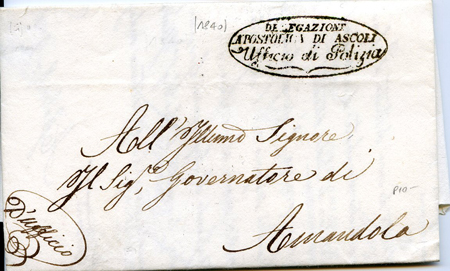 (1840)
DELEGAZIONE
APOSTOLICA DI ASCOLI
Ufficio di Polizia
All' Illmo Signore
Il Sig.e Governatore di
Amandola
D'ufficio